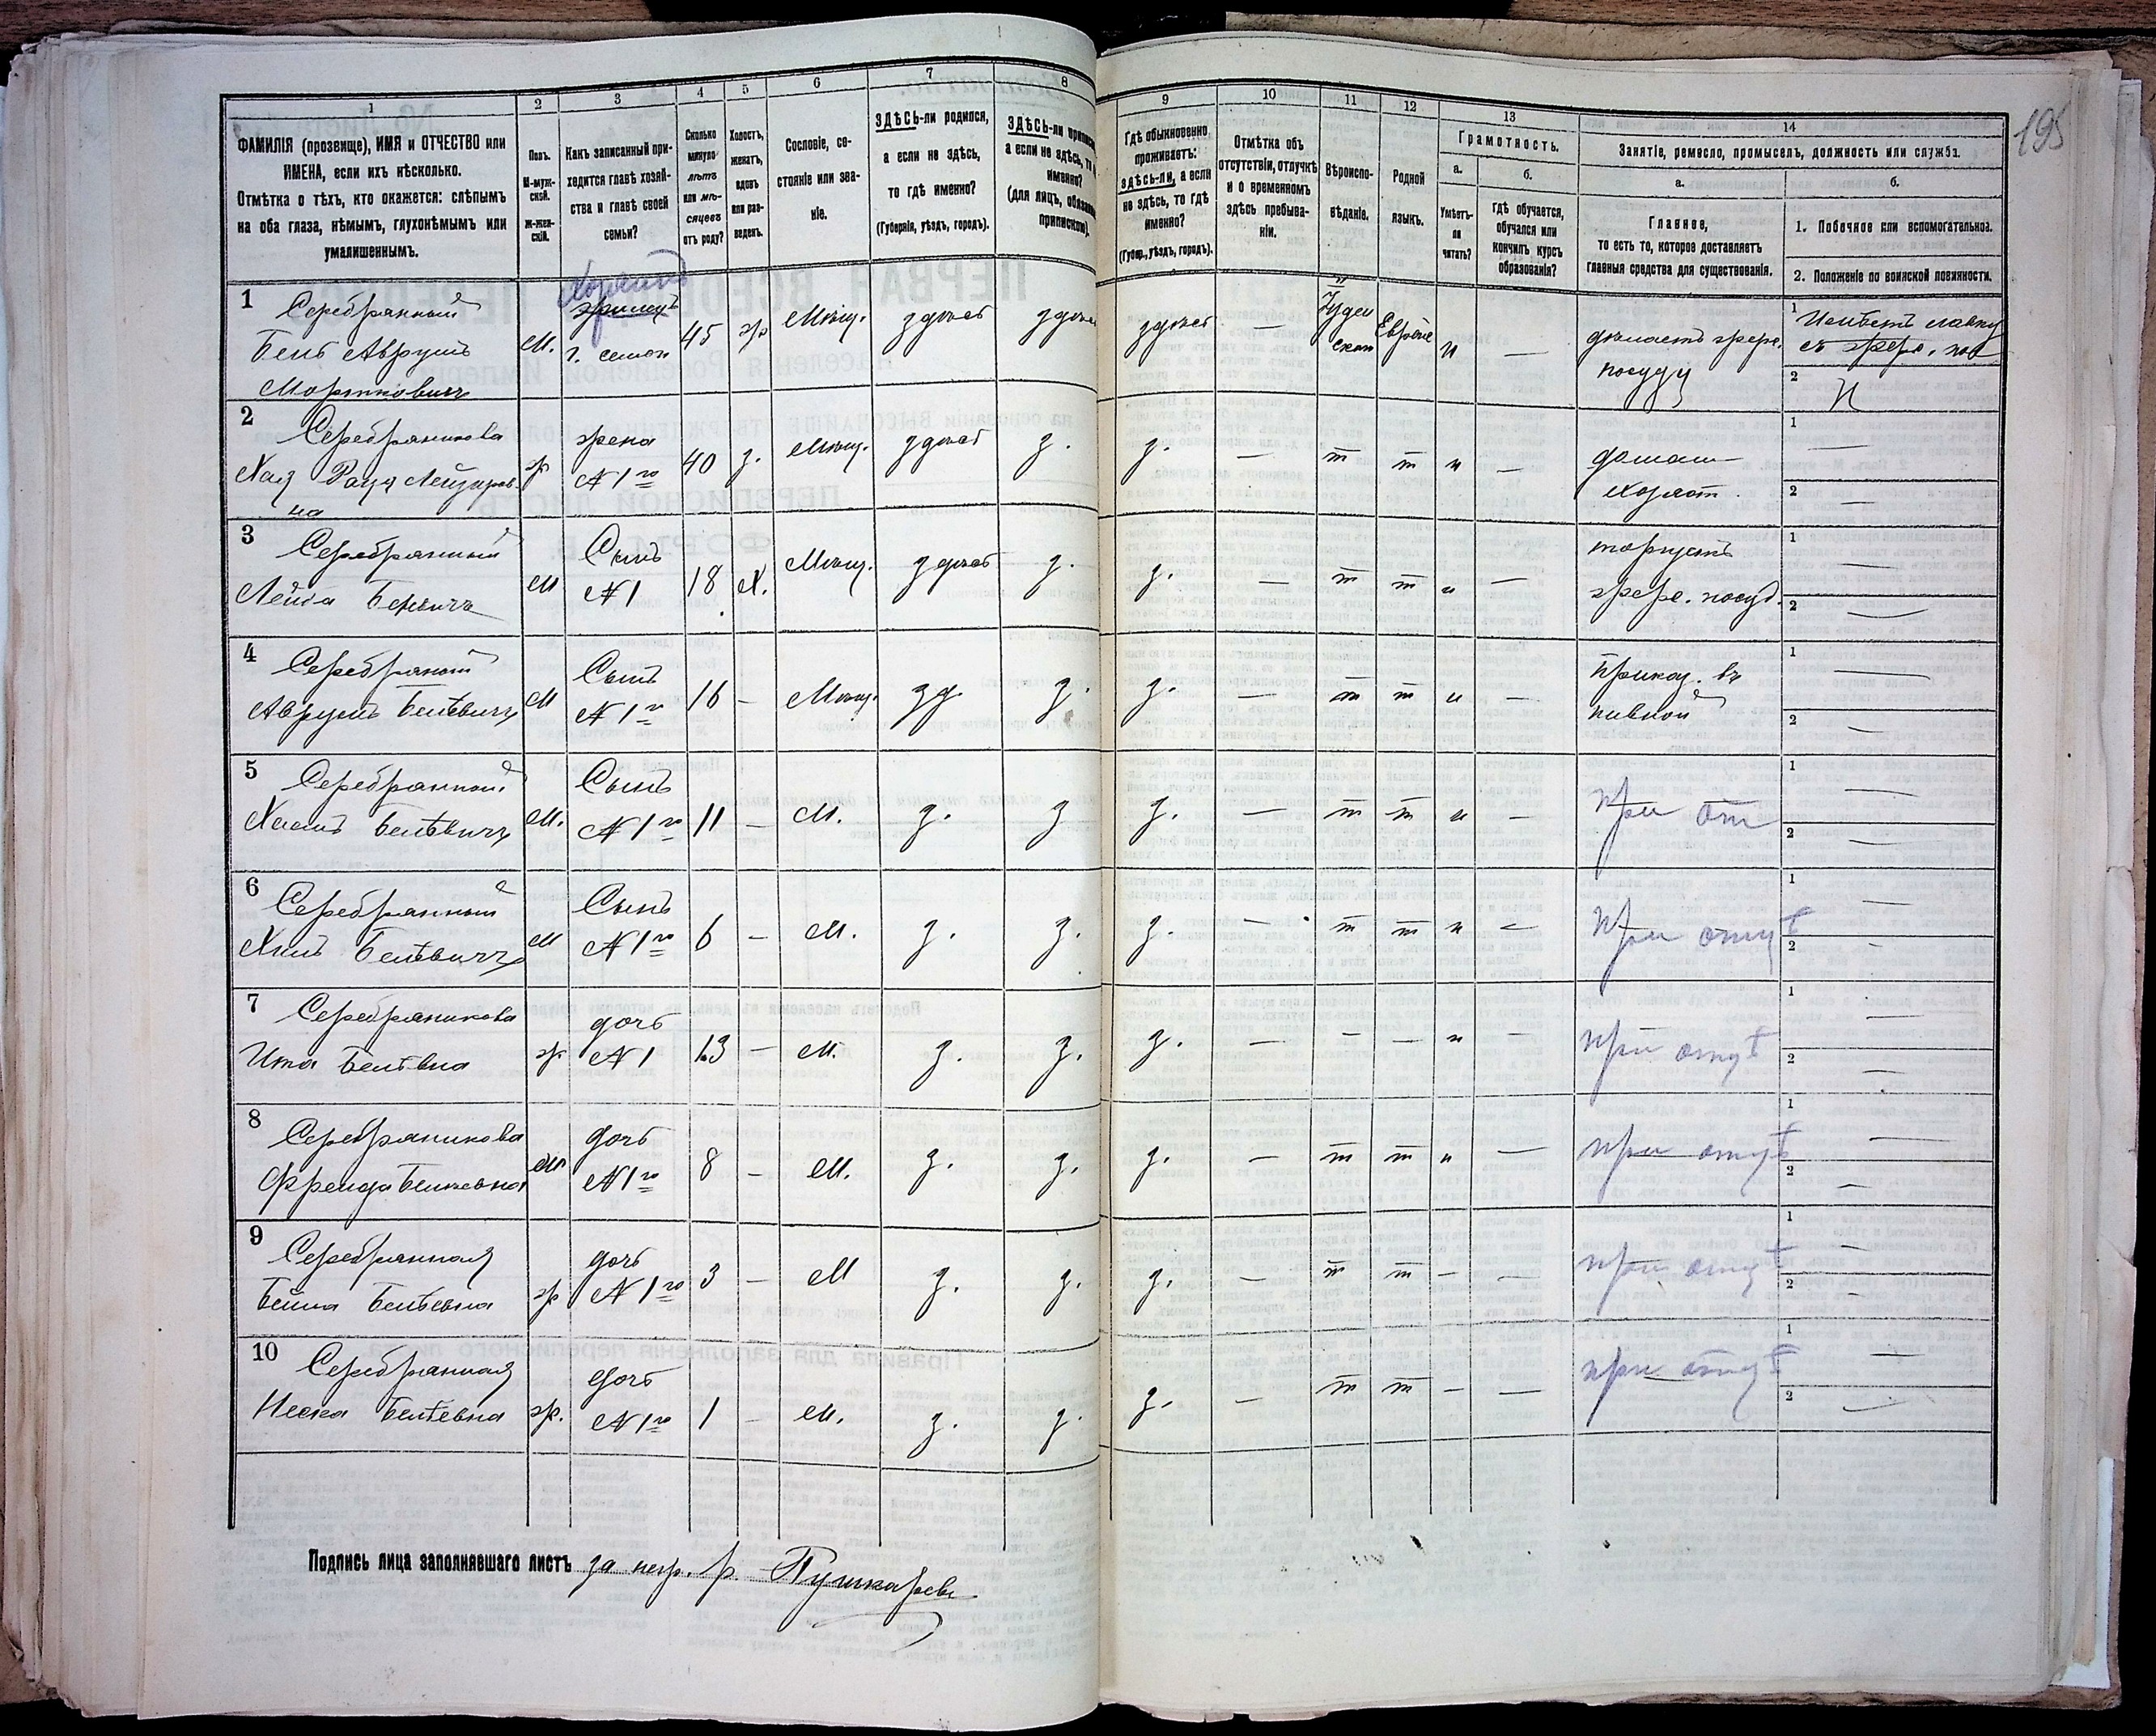 195
1
2
3
4
5
6
7
8
9
10
11
12
13
14
ФАМИЛІЯ (прозвище), ИМЯ и ОТЧЕСТВО или
ИМЕНА, если ихъ нѣсколько.
Отмѣтка о тѣхъ, кто окажется: слѣпымъ
на оба глаза, нѣмымъ, глухонѣмымъ или
умалишеннымъ.
Полъ.
М-муж-
ской.
Ж-жен-
скій.
Какъ записанный при-
ходится главѣ хозяй-
ства и главѣ своей
семьи?
Сколько
минуло
лѣтъ
или мѣ-
сяцевъ
отъ роду?
Холостъ,
женатъ,
вдовъ
или раз-
веденъ.
Сословіе, со-
стояніе или зва-
ніе.
ЗДѢСЬ-ли родился,
а если не здѣсь,
то гдѣ именно?
(Губернія, уѣздъ, городъ).
ЗДѢСЬ-ли
а если не здѣсь, то
именно?
(для лицъ,
припискою).
Гдѣ обыкновенно
проживаетъ:
здѣсь-ли, а если
не здѣсь, то гдѣ
именно?
(Губер., уѣздъ, городъ).
Отмѣтка объ
отсутствіи, отлучкѣ
и о временномъ
здѣсь пребыва-
ніи.
Вѣроиспо-
вѣданіе.
Родной
языкъ.
Грамотность.
а.
б.
Умѣетъ-
ли
читать?
Гдѣ обучается,
обучался или
кончилъ курсъ
образованія?
Занятіе, ремесло, промыселъ, должность или служба.
а.
б.
Главное,
то есть то, которое доставляетъ
главныя средства для существованія.
1. Побочное или вспомогательное.
2. Положеніе по воинской повинности.
1 Серебрянный
М.
г. семьи
45
Мѣщ.
здѣсь
здѣсь
—
и
—
дѣлаетъ
посуду
1
2
2 Серебряникова
Хая
на
ж
жена
№ 1го
40
з.
Мѣщ.
здѣсь
з.
з.
—
т
т
и
—
домаш
1 —
2 —
3 Серебрянный
Лейба
М
Сынъ
№ 1
18
Х.
Мѣщ.
здѣсь
з.
з.
—
т
т
и
—
торгуетъ
посуд.
1 —
2 —
4 Серебряный
М
Сынъ
№ 1го
16
—
Мѣщ.
зд.
з.
з.
—
т
т
и
—
Приказ. въ
пивной
1 —
2 —
5 Серебрянный
М.
Сынъ
№ 1го
11
—
М.
з.
з
з.
—
т
т
и
—
при от
1 —
2 —
6 Серебрянный
М
Сынъ
№ 1го
6
—
М.
з.
з.
з.
—
т
т
и
—
при отцѣ
1 —
2 -
7 Серебряникова
Ита
ж
дочь
№ 1
13
—
М.
з.
з.
з.
—
—
—
и
—
при отцѣ
1 —
2 —
8 Серебряникова
М
дочь
№ 1го
8
—
М.
з.
з.
з.
—
т
т
и
—
при отцѣ
1 —
2 —
9 Серебрянная
Бейла
ж
дочь
№ 1го
3
—
М
з.
з.
з.
—
т
т
—
—
при отцѣ
1 —
2 -
10 Серебрянная
Неска
ж.
дочь
№ 1го
1
—
М.
з.
з.
з.
—
т
т
—
—
при отцѣ
1 —
2 —
Подпись лица заполнявшаго листъ за негр. р. Пушкаревъ